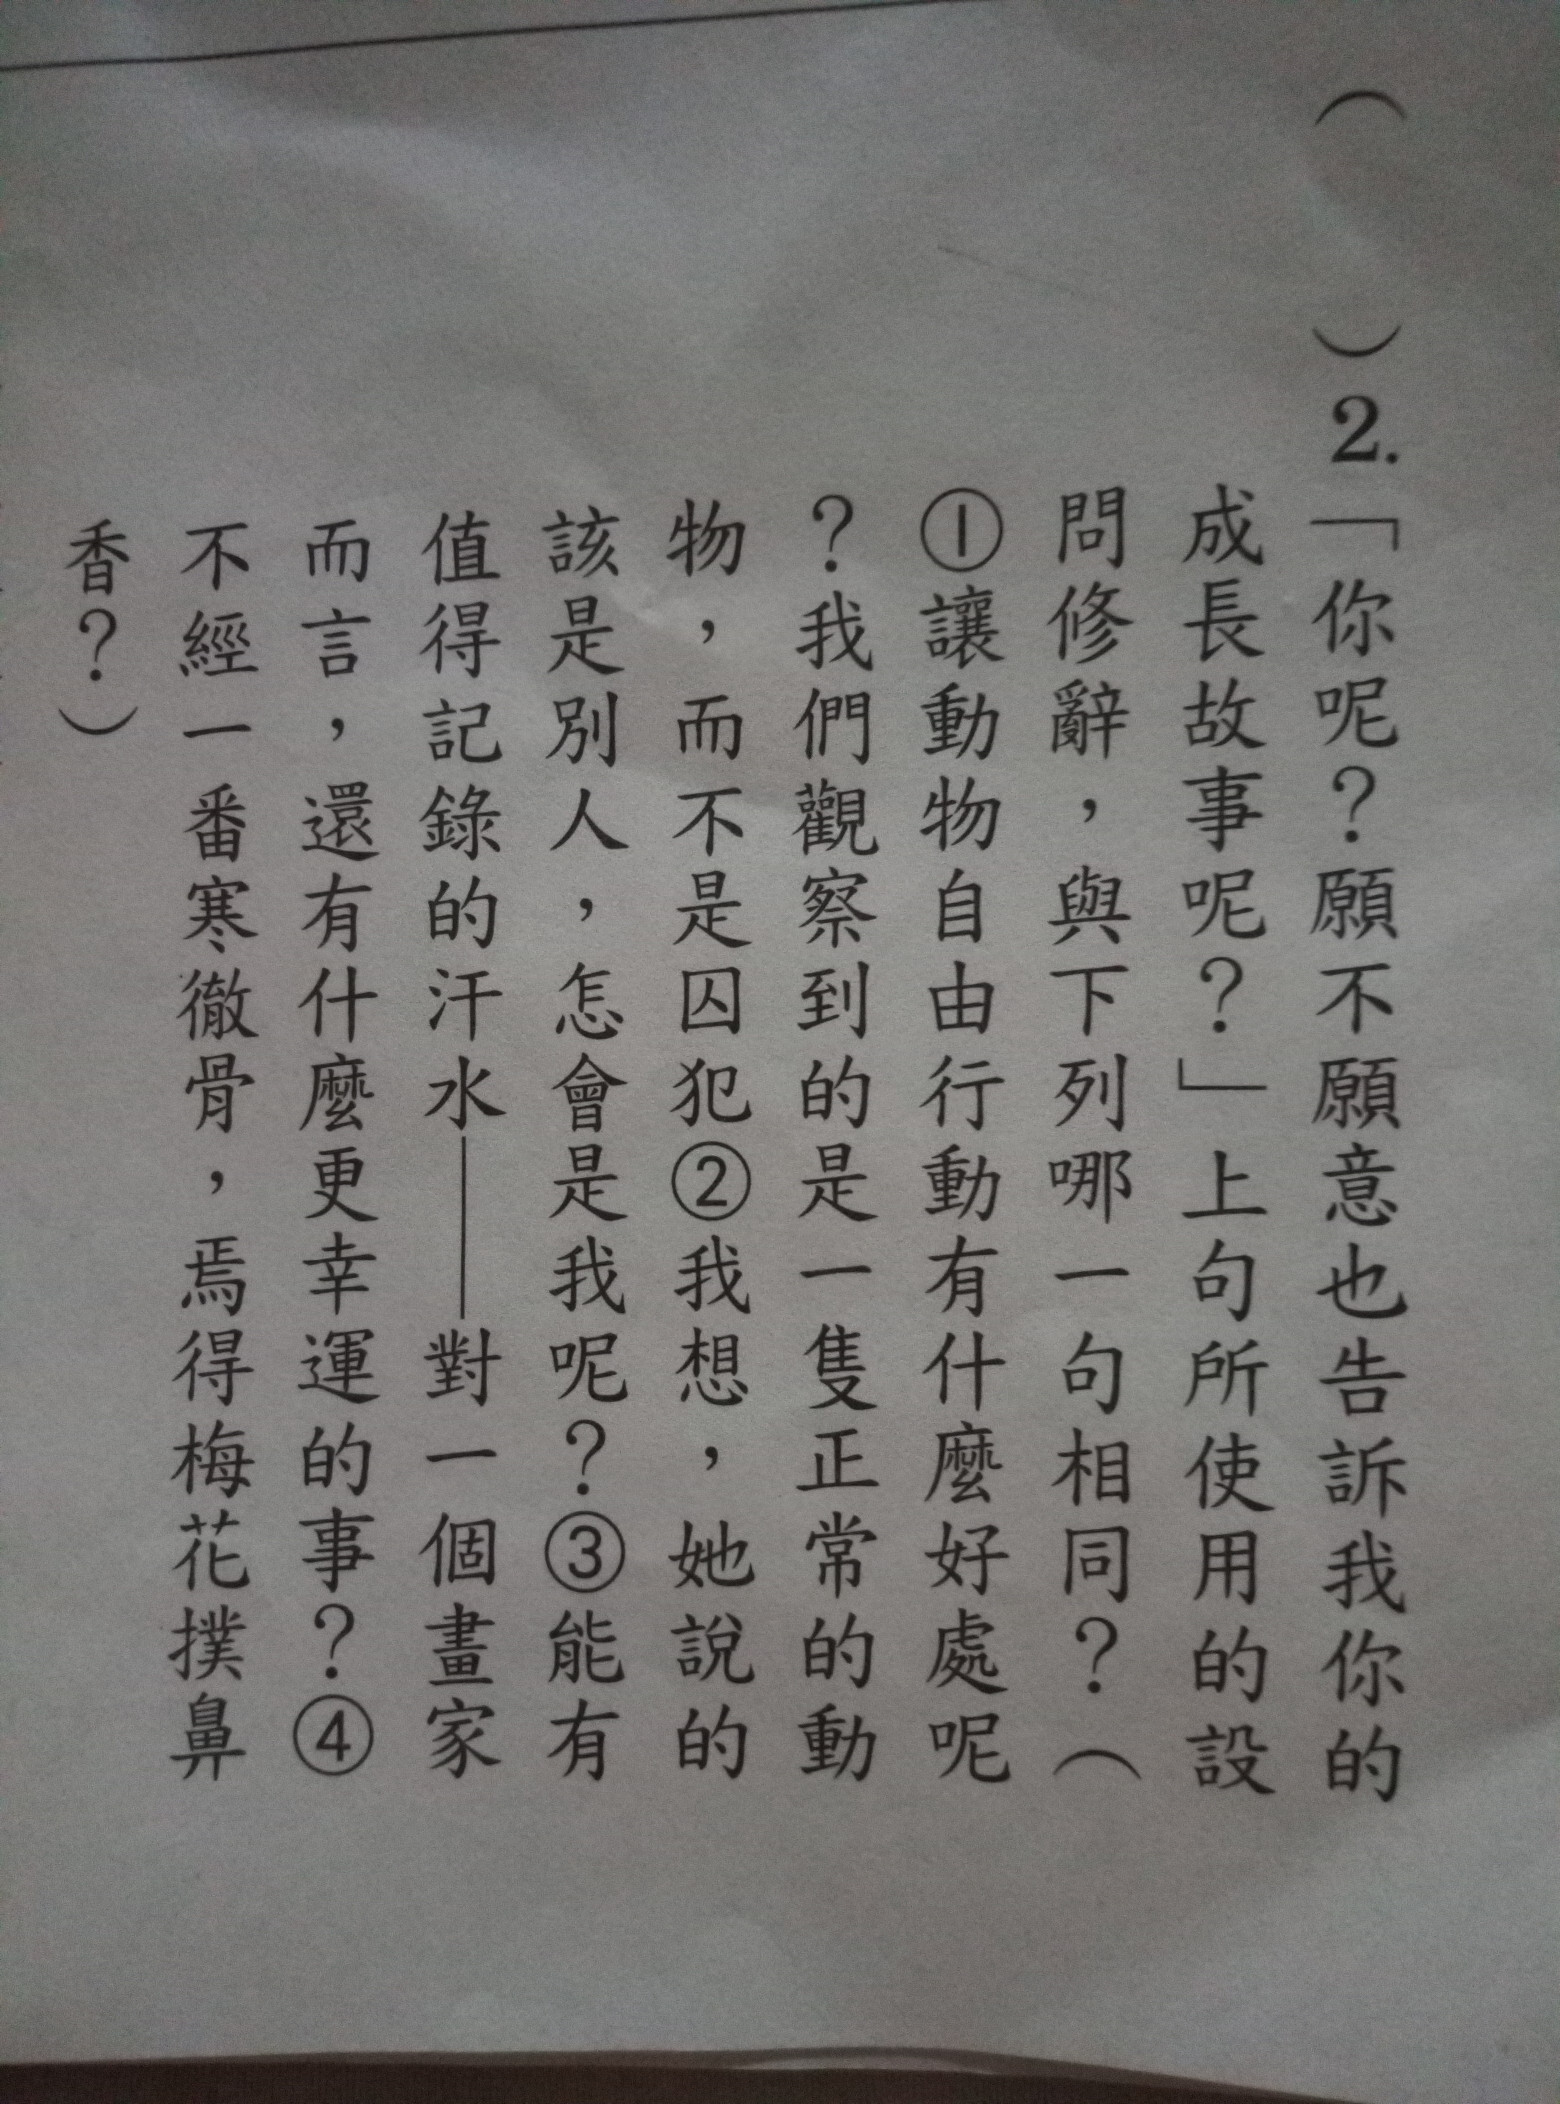 （　　）2.「你呢？願不願意也告訴我你的
成長故事呢？」上句所使用的設
問修辭，與下列哪一句相同？（
①讓動物自由行動有什麼好處呢
？我們觀察到的是一隻正常的動
物，而不是囚犯②我想，她說的
該是別人，怎會是我呢？③能有
值得記錄的汗水——對一個畫家
而言，還有什麼更幸運的事？④
不經一番寒徹骨，焉得梅花撲鼻
香？）